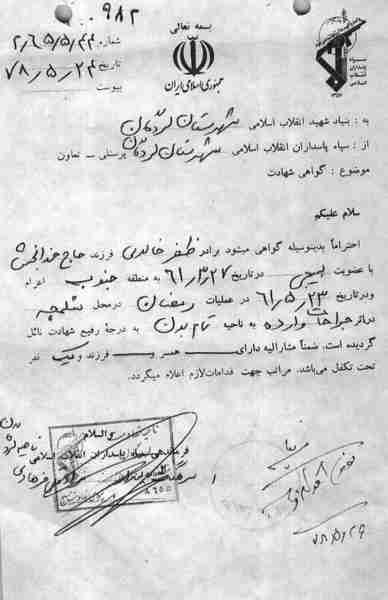 ۹۸۲
بسمه تعالی
شماره ۲٫۶۵٫۵٫۴۴
تاریخ ۷۸٫۵٫۲۴
پیوست
جمهوری اسلامی ایران
سپاه پاسداران انقلاب اسلامی
به : بنیاد شهید انقلاب اسلامی شهرستان لردگان
از : سپاه پاسداران انقلاب اسلامی شهرستان لردگان پرسنلی ــ تعاون
موضوع : گواهی شهادت
سلام علیکم
احتراماً بدینوسیله گواهی میشود برادر ظفر خالدی فرزند حاج خدابخش
با عضویت بسیجی در تاریخ ۶۱٫۳٫۲۷ به منطقه جنوب اعزام
و در تاریخ ۶۱٫۵٫۲۳ در عملیات رمضان در محل شلمچه
در اثر جراحات وارده به ناحیه تمام بدن به درجه رفیع شهادت نائل
گردیده است. ضمناً مشارالیه دارای ــ همسر و ــ فرزند و یک نفر
تحت تکفل می‌باشد. مراتب جهت اقدامات لازم اعلام میگردد.
فرماندهی سپاه پاسداران انقلاب اسلامی
۷۸٫۵٫۲۶